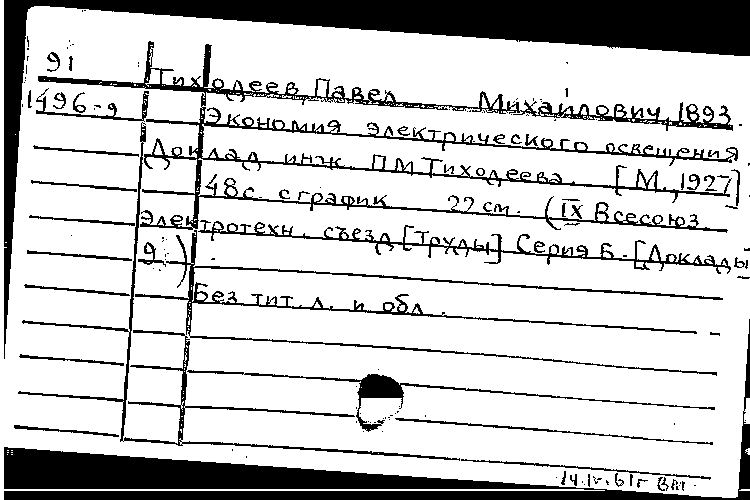 91
Тиходеев, Павел Михайлович, 1893.
1496-9
Экономия электрического освещения.
Доклад инж. П М Тиходеева. [М., 1927].
48 с. с график 22 см. (IX Всесоюз.
электротехн. съезд [Труды] Серия Б. [Доклады
9)
Без тит. л. и обл.
14.IV.61г ВМ.